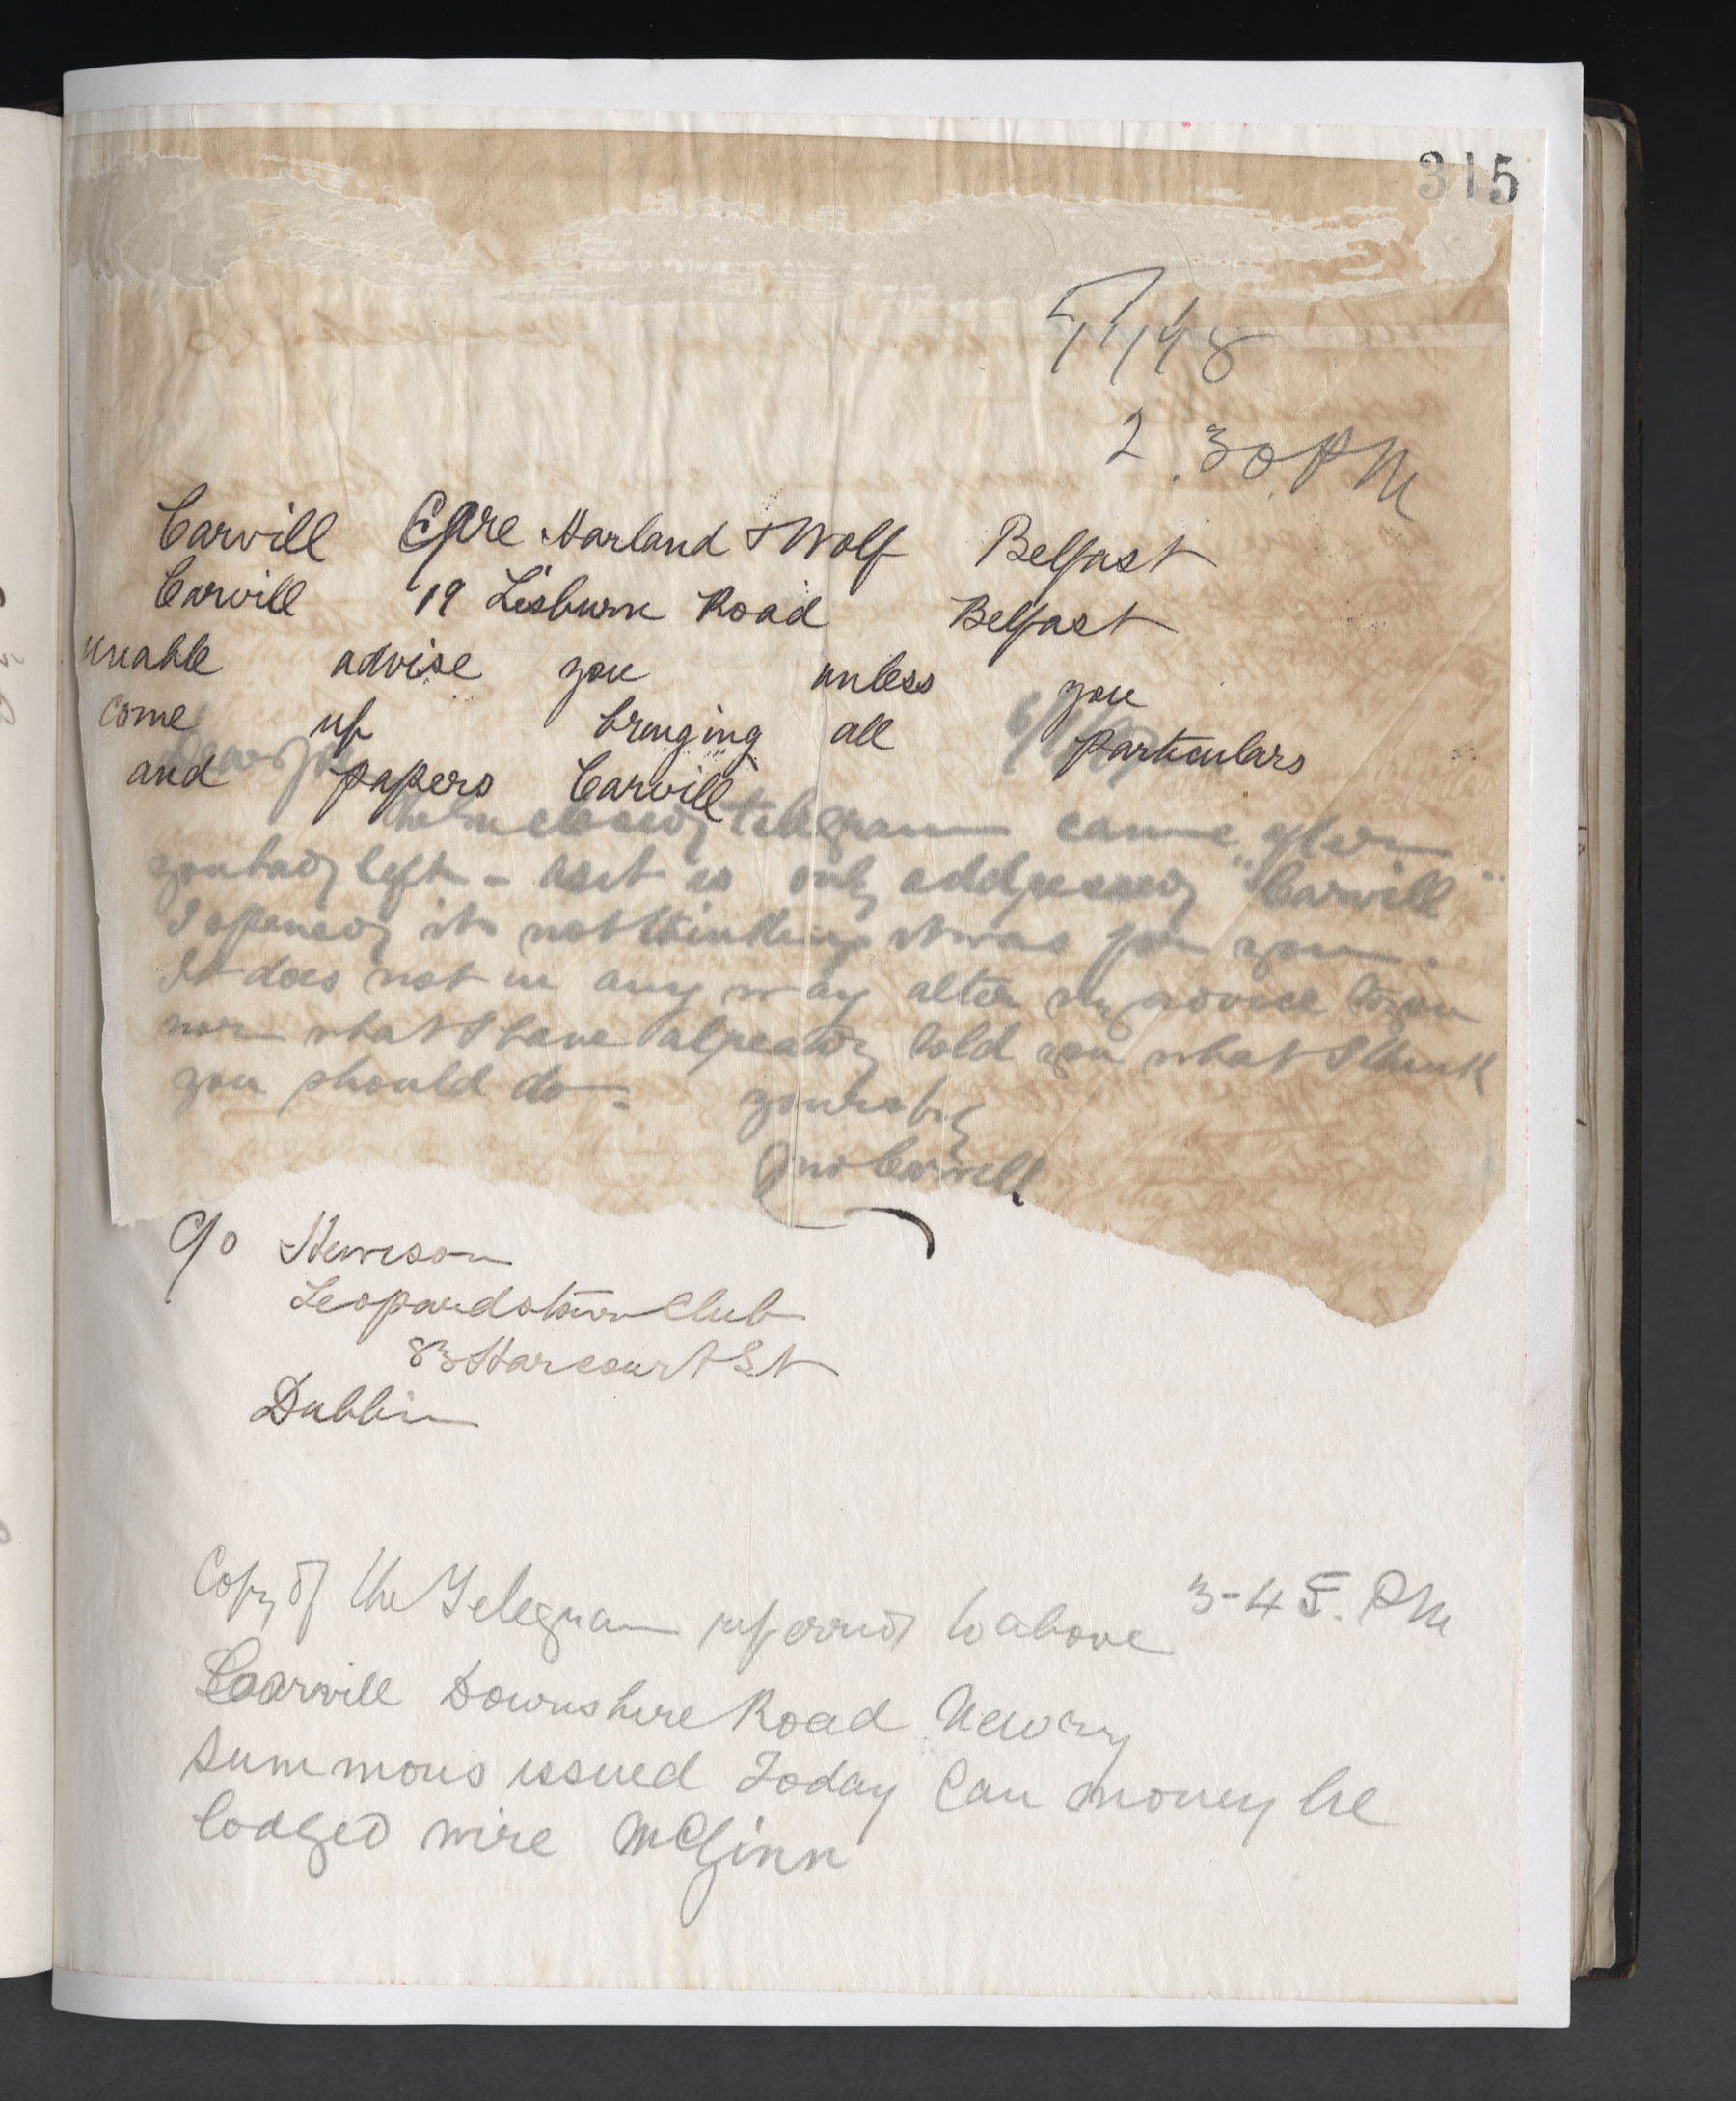 315
7/1/98
2.30. PM
Carvill Care Harland & Wolf Belfast
Carvill 19 Lisburn Road Belfast
unable advise you unless you
come up bringing all particulars
and papers Carvill
6/1/
Dear Joe
The enclosed telegram came after
you had left - as it is only addressed "Carvill"
I opened it not thinking it was for you.
It does not in any way alter my advice to you
nor what I have already told you what I think
you should do. yours
Jno Carvill
C/o Hewson
Leopardstown Club
83 Harcourt St
Dublin
Copy of the Telegram referred to above 3-45. PM
Carvill Downshire Road Newry
Summons issued Today Can money be
lodged wire McGinn